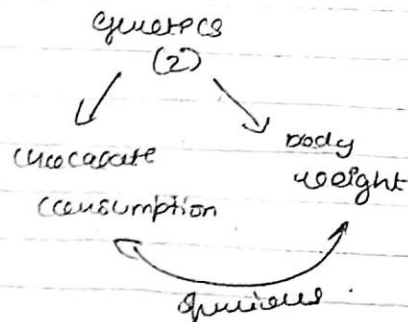 genetics
(2)
chocolate
consumption
body
weight
spurious.